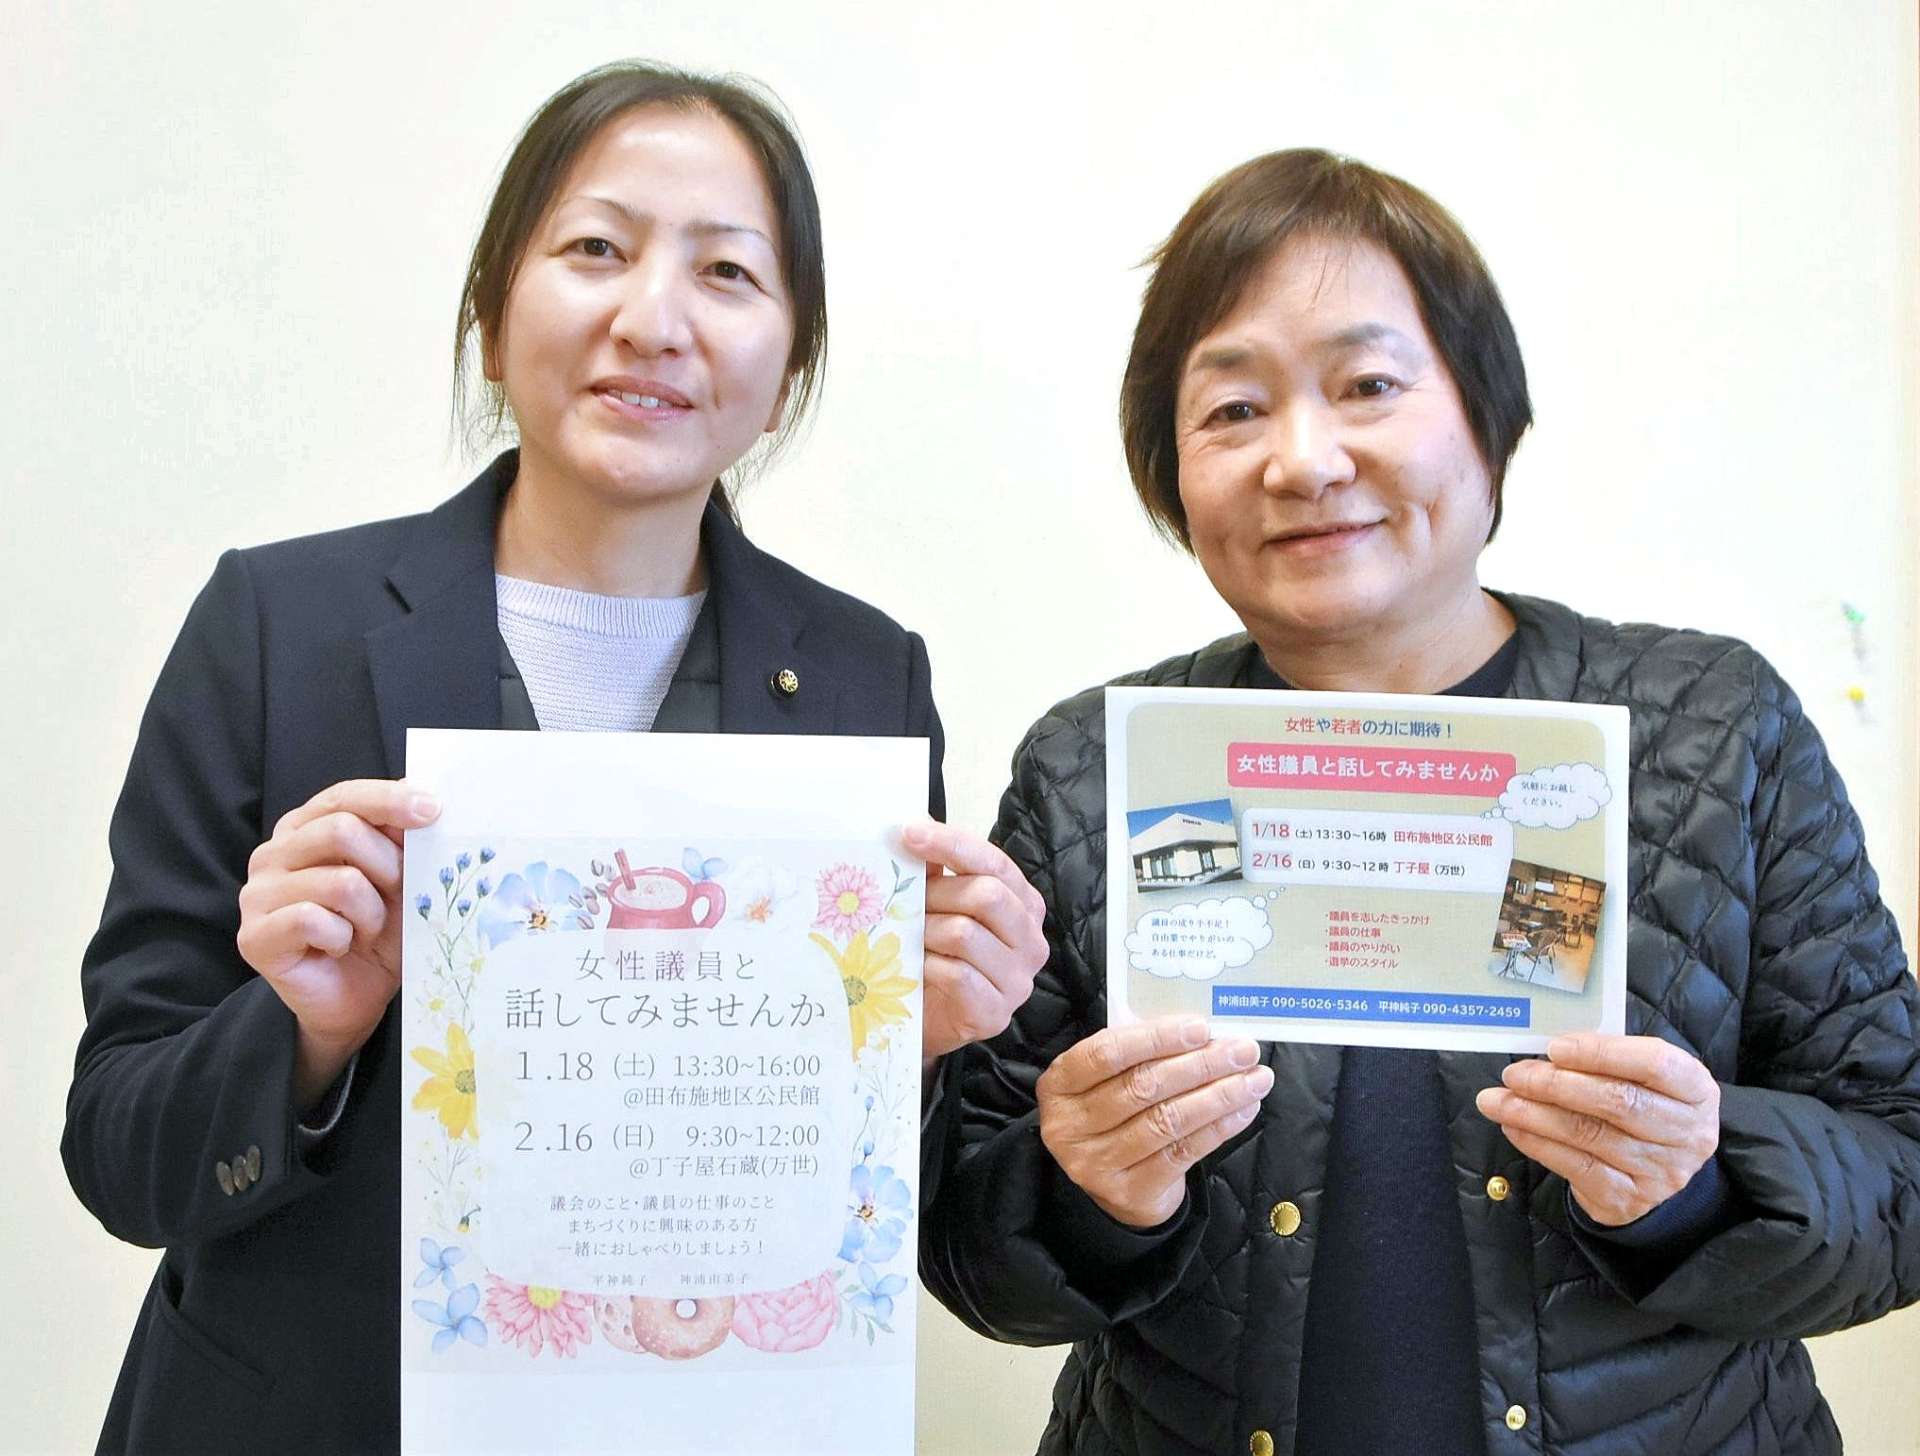 女性議員と
話してみませんか
1.18 (土) 13:30~16:00
@田布施地区公民館
2.16 (日) 9:30~12:00
@丁子屋石蔵(万世)
議会のこと・議員の仕事のこと
まちづくりに興味のある方
一緒におしゃべりしましょう！
平神純子 神浦由美子
女性や若者の力に期待！
女性議員と話してみませんか
気軽にお越し
ください。
1/18 (土) 13:30～16時 田布施地区公民館
2/16 (日) 9:30～12時 丁子屋 (万世)
議員の成り手不足！
自由業でやりがいの
ある仕事だけど。
・議員を志したきっかけ
・議員の仕事
・議員のやりがい
・選挙のスタイル
神浦由美子 090-5026-5346 平神純子 090-4357-2459